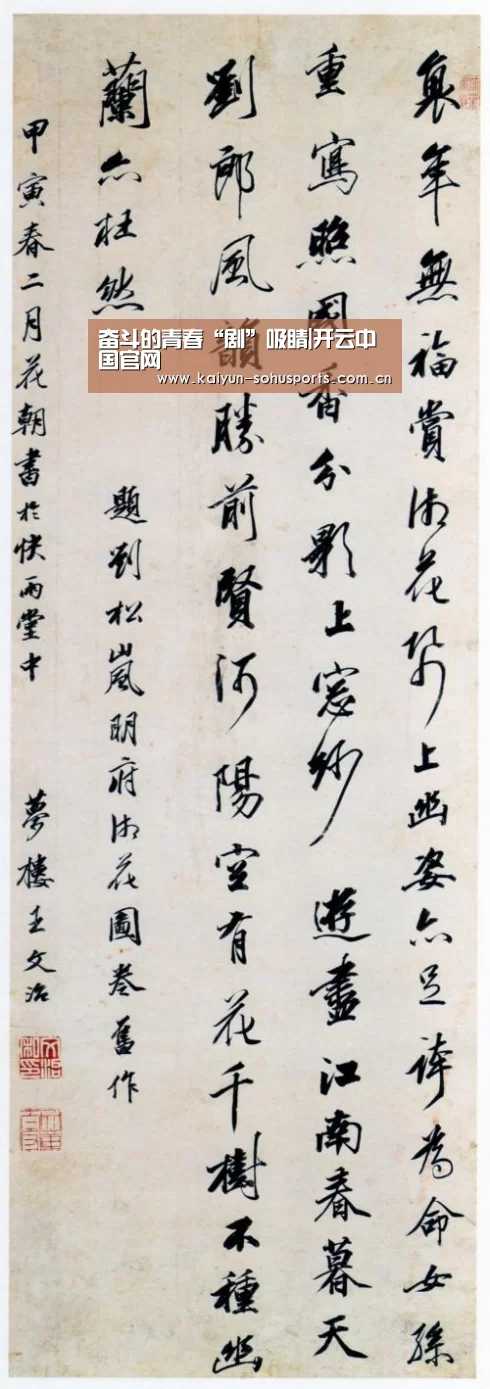 衰年無福賞湘花紙上幽姿亦足誇為命女孫
重寫照國香分影上窓紗 遊盡江南春暮天
劉郎風韻勝前賢河陽空有花千樹不種幽
蘭亦枉然
題劉松嵐明府湘花圖卷舊作
甲寅春二月花朝書於快雨堂中 夢樓王文治
奋斗的青春“剧”吸睛|开云中
国官网
www.kaiyun-sohusports.com.cn